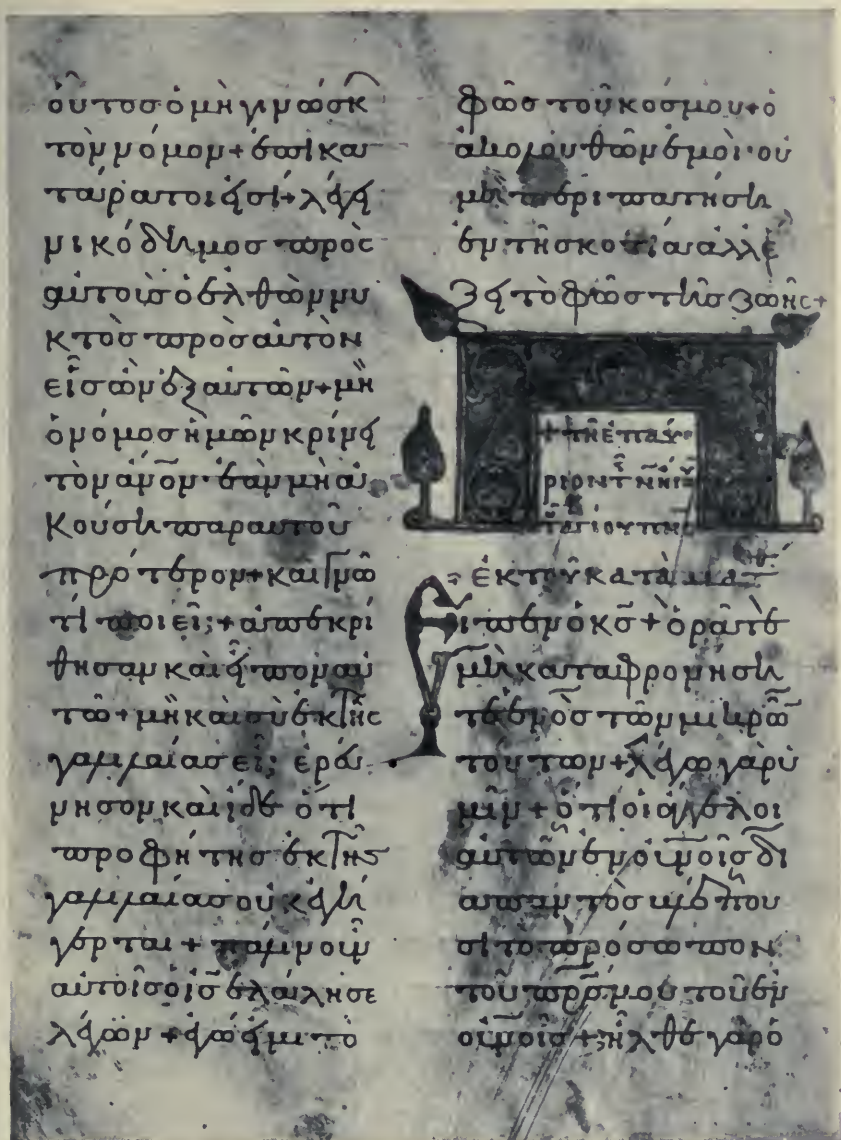 οὗτοσ ὁ μὴ γινώσκ
τὸν νόμον + ἐπικα
τάρατοι εἰσί + λέγει
νικόδημοσ πρὸς
αὐτοὺσ ὁ ἐλθὼν νυ
κτὸσ πρὸσ αὐτὸν
εἷσ ὢν ἐξ αὐτῶν + μὴ
ὁ νόμοσ ἡμῶν κρίνει
τὸν ἄνον · ἐὰν μὴ ἀ
κούσῃ παρ αὐτοῦ
πρότερον + καὶ γνῶ
τί ποιεῖ; + ἀπεκρί
θησαν καὶ εἶπον αὐ
τῶ + μὴ καὶ σὺ ἐκ τῆς
γαλιλαίασ εἶ; ἐραύ
νησον καὶ ἰδε ὅτι
προφήτησ ἐκ τῆσ
γαλιλαίασ οὐκ ἐγή
γερται + πάλιν οὖν
αὐτοῖσ ὁ ισ ἐλάλησε
λέγων + ἐγώ εἰμι τὸ
φῶσ τοῦ κόσμου + ὁ
ἀκολουθῶν ἐμοὶ · οὐ
μὴ περιπατήσῃ
ἐν τῆ σκοτία ἀλλ ἕ
ξει τὸ φῶσ τῆσ ζωῆς +
+ τῆ ἐπαύ
ριον τ ν
τ ἁγίου πν
ἐκ τοῦ κατὰ ματ
Εἶπεν ὁ κσ + ὁρᾶτε
μὴ καταφρονήσῃ
τε ἑνὸσ τῶν μικρῶ
τούτων + λέγω γὰρ ὑ
μῖν + ὅτι οἱ ἄγγελοι
αὐτῶν ἐν οὐνοῖσ δι
απαντὸσ βλέπου
σι τὸ πρόσωπον
τοῦ πρσ μου τοῦ ἐν
οὐνοῖσ + ἦλθε γὰρ ὁ